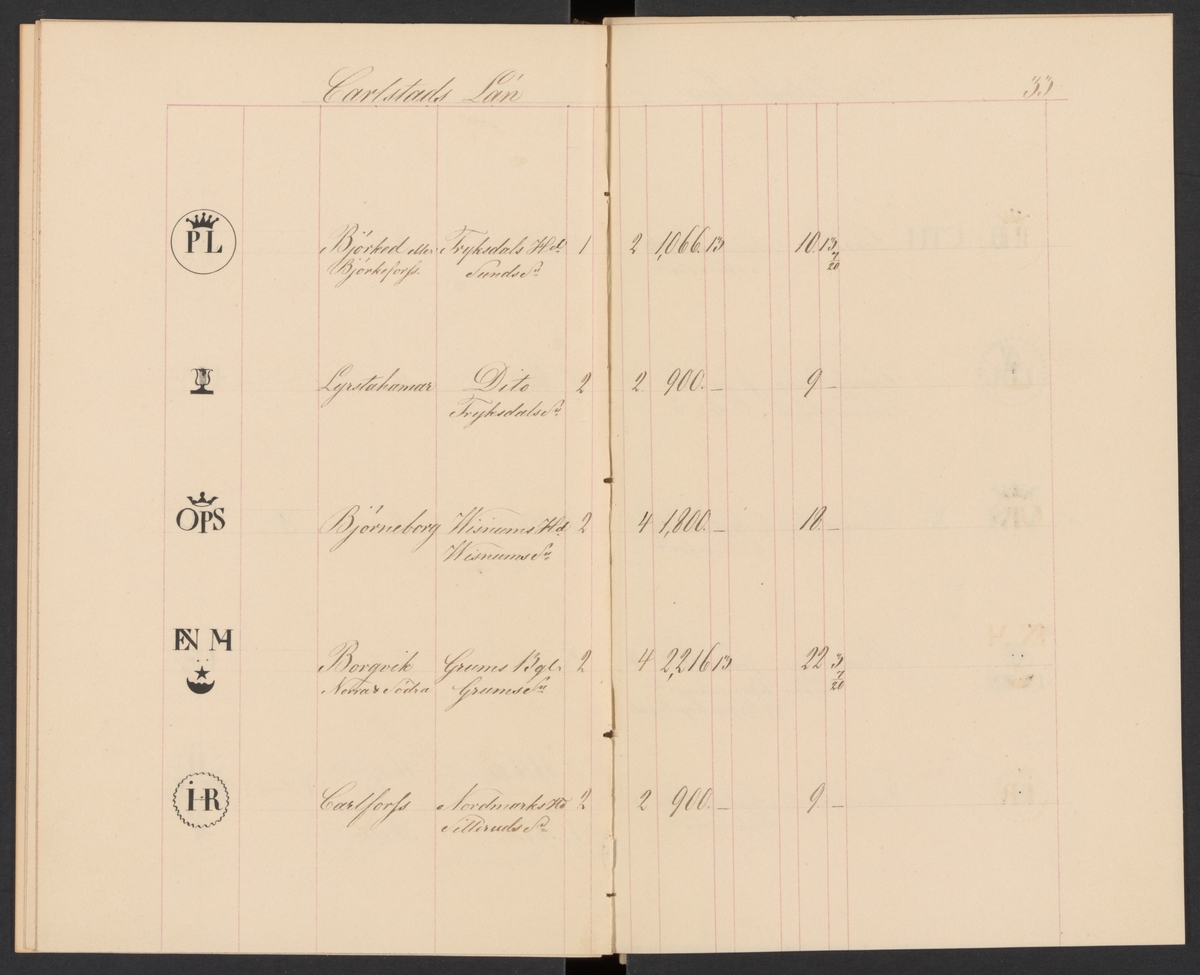 Carlstads Län 33
PL Björked eller Fryksdals Hd 1 2 1,066. 13 10. 13 7/20
Björkeforss. Sunds Sn
Lyrstahamar Dito 2 2 900. — 9 —
Fryksdals Sn
OPS Björneborg Wisnums Hd 2 4 1,800. — 18 —
Wisnums Sn
EN MH
Borgvik Grums Bgl. 2 4 2,216 13 22 3 7/20
Norra & Södra Grums Sn
IHR Carlforss Nordmarks Hd 2 2 900. — 9 —
Silleruds Sn